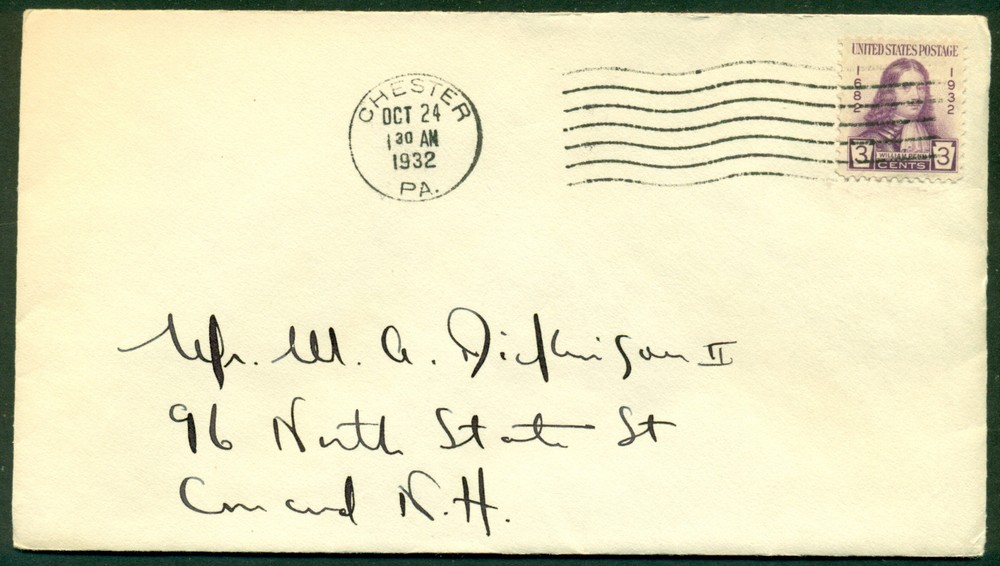 UNITED STATES POSTAGE
1682
1932
CHESTER
OCT 24
1 30 AM
1932
PA.
3 WILLIAM PENN 3
CENTS
Mr. W. A. Dickinson II
96 North State St
Concord N.H.